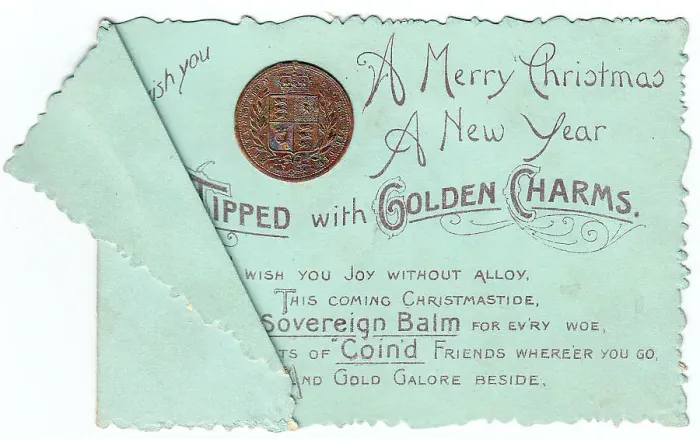 ish you
A Merry Christmas
A New Year
TIPPED with GOLDEN CHARMS.
WISH YOU JOY WITHOUT ALLOY,
THIS COMING CHRISTMASTIDE,
Sovereign Balm FOR EV'RY WOE,
TS OF "Coin'd" FRIENDS WHERE'ER YOU GO,
AND GOLD GALORE BESIDE,